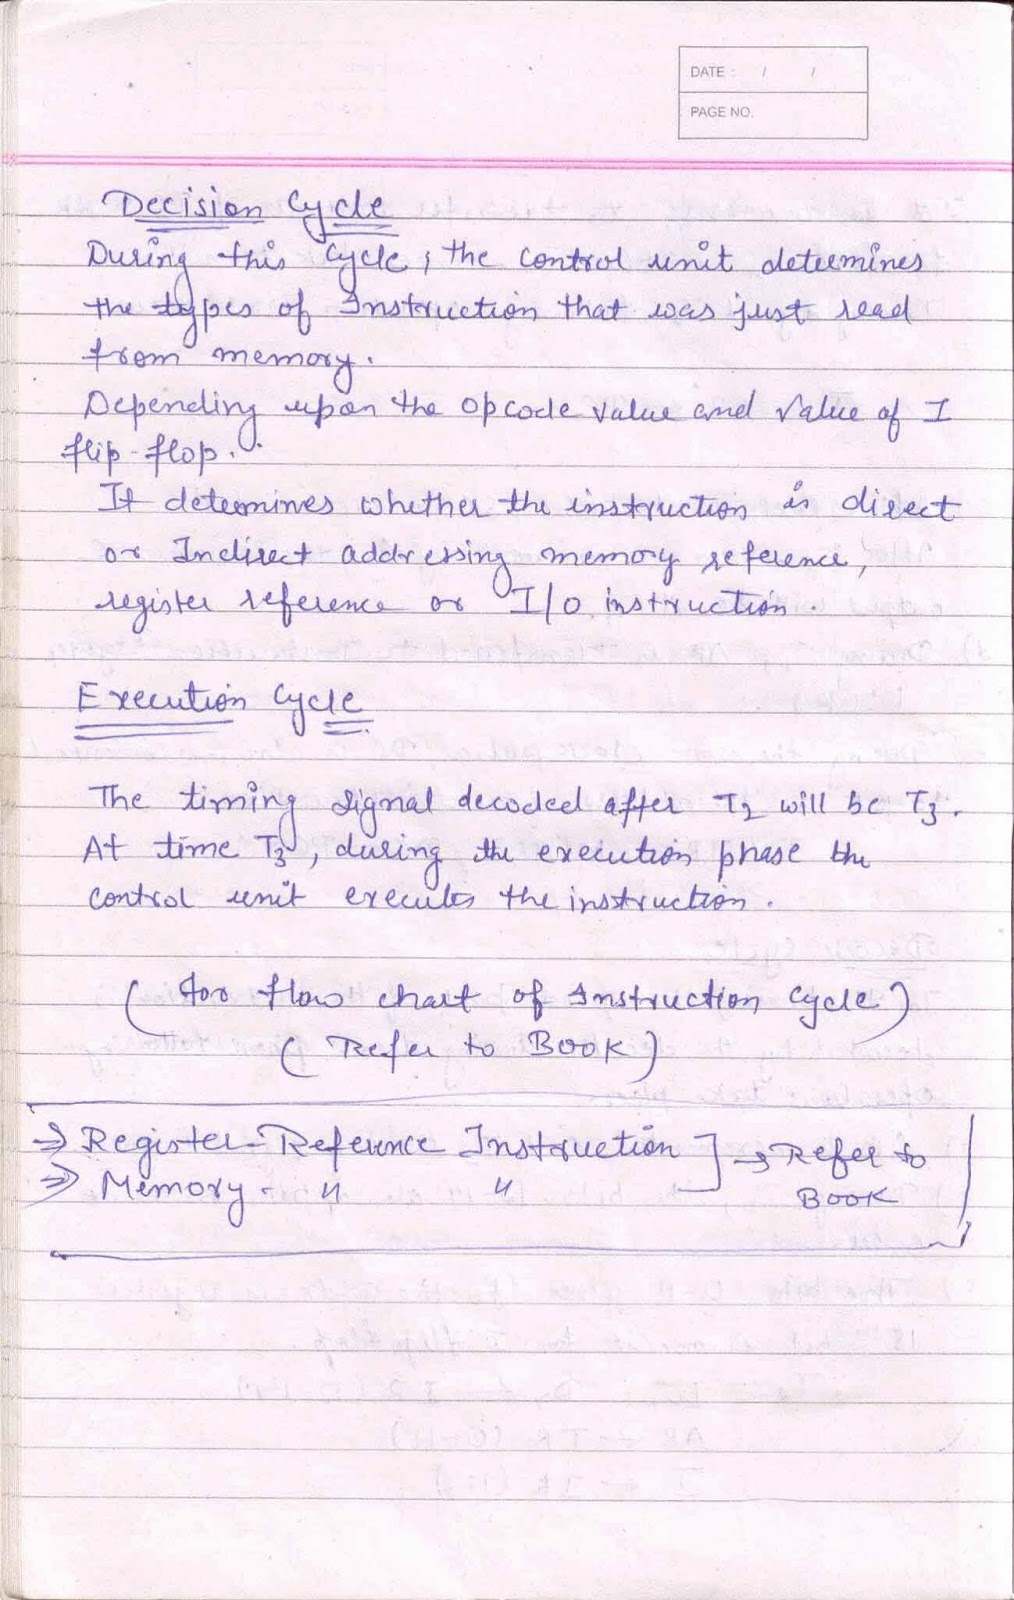 DATE : / /
PAGE NO.
Decision Cycle
During this cycle, the control unit determines
the types of Instruction that was just read
from memory.
Depending upon the opcode value and value of I
flip-flop.
It determines whether the instruction is direct
or Indirect addressing memory reference,
register reference or I/O instruction.
Execution Cycle
The timing signal decoded after T2 will be T3.
At time T3, during the execution phase the
control unit executes the instruction.
(for flow chart of Instruction Cycle)
(Refer to BOOK)
⇒ Register-Reference Instruction ] → Refer to
⇒ Memory - " " BOOK